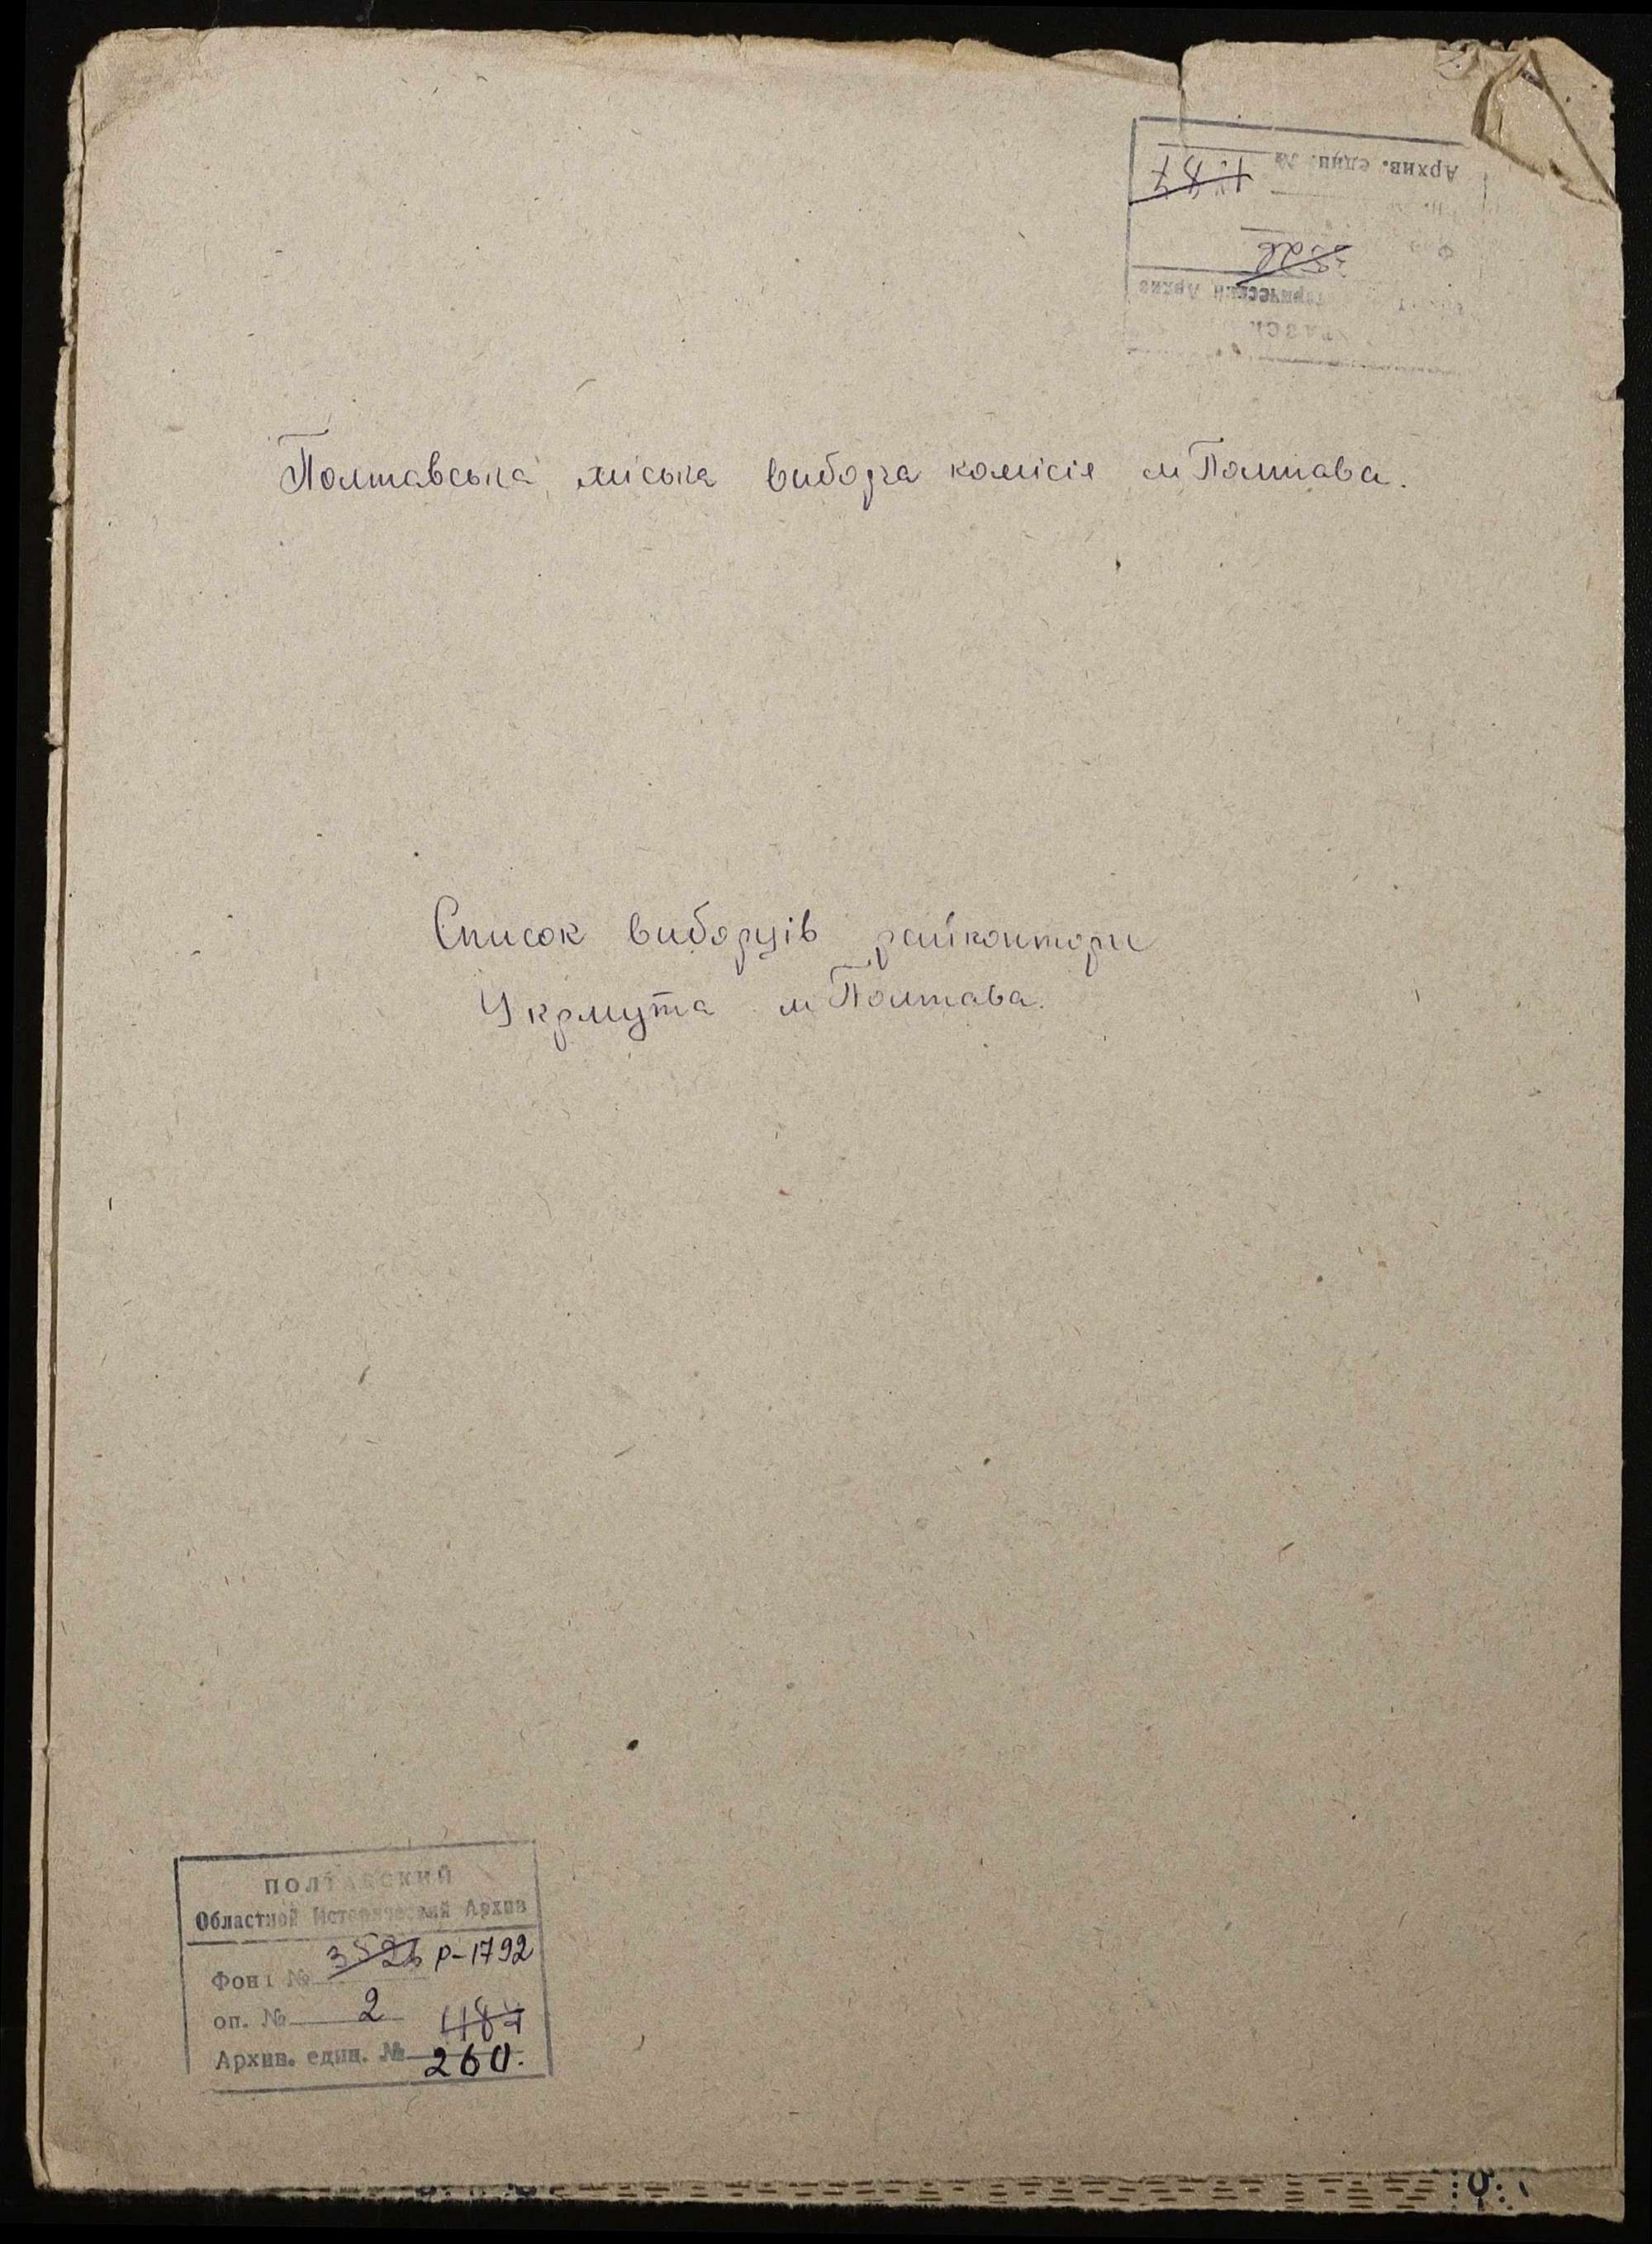 Архив. един. № 487
3526
Полтавська міська виборча комісія м Полтава.
Список виборців райконтори
Укрмута м Полтава.
ПОЛТАВСКИЙ
Областной Исторический Архив
Фонд № 3526 Р-1792
оп. № 2
487
Архив. един. № 260.